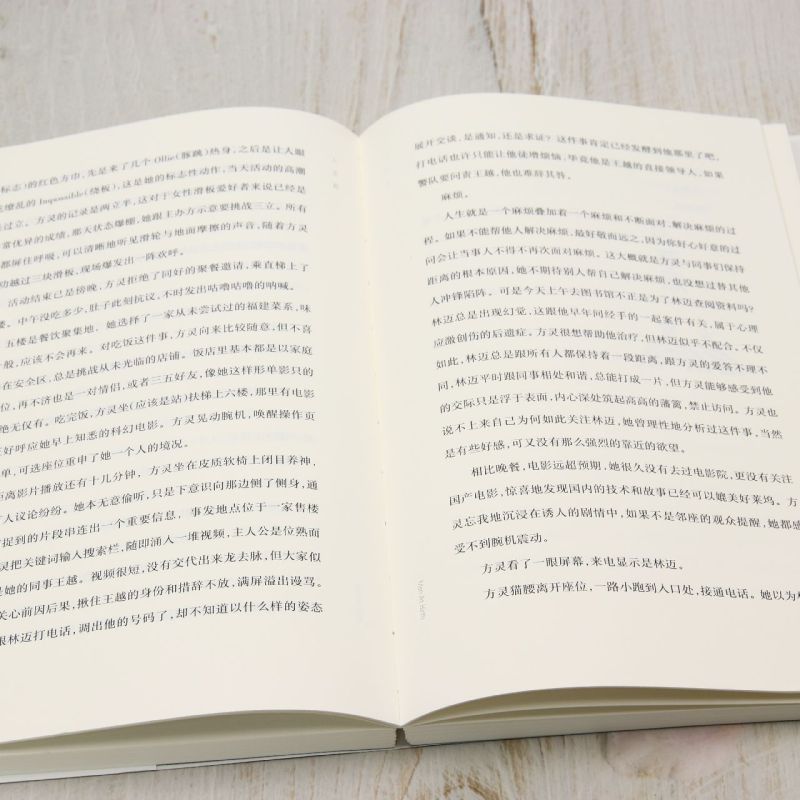 标志)的红色方巾,先是来了几个 Ollie(豚跳)热身,之后是让人眼
缭乱的 Impossible(绕板),这是她的标志性动作,当天活动的高潮
是过立。方灵的记录是两立半,这对于女性滑板爱好者来说已经是
常优异的成绩,那天状态爆棚,她跟主办方示意要挑战三立。所有
都屏住呼吸,可以清晰地听见滑轮与地面摩擦的声音,随着方灵
功越过三块滑板,现场爆发出一阵欢呼。
活动结束已是傍晚,方灵拒绝了同好的聚餐邀请,乘直梯上了
楼。中午没吃多少,肚子此刻抗议,不时发出咕噜咕噜的呐喊。
五楼是餐饮聚集地。她选择了一家从未尝试过的福建菜系,味
一般,应该不会再来。对吃饭这件事,方灵向来比较随意,但不喜
在安全区,总是挑战从未光临的店铺。饭店里基本都是以家庭
位,再不济也是一对情侣,或者三五好友,像她这样形单影只的
绝无仅有。吃完饭,方灵坐(应该是站)扶梯上六楼,那里有电影
正好呼应她早上知悉的科幻电影。方灵晃动腕机,唤醒操作页
单,可选座位重申了她一个人的境况。
距离影片播放还有十几分钟,方灵坐在皮质软椅上闭目养神,
人议论纷纷。她本无意偷听,只是下意识向那边侧了侧身,通
捕捉到的片段串连出一个重要信息,事发地点位于一家售楼
灵把关键词输入搜索栏,随即涌入一堆视频,主人公是位熟面
是她的同事王越。视频很短,没有交代出来龙去脉,但大家似
关心前因后果,揪住王越的身份和措辞不放,满屏溢出谩骂。
跟林迈打电话,调出他的号码了,却不知道以什么样的姿态
展开交谈,是通知,还是求证?这件事肯定已经发酵到他那里了吧。
打电话也许只能让他徒增烦恼,毕竟他是王越的直接领导人,如果
警队要问责王越,他也难辞其咎。
麻烦。
人生就是一个麻烦叠加着一个麻烦和不断面对、解决麻烦的过
程。如果不能帮他人解决麻烦,最好敬而远之,因为你好心好意的过
问会让当事人不得不再次面对麻烦。这大概就是方灵与同事们保持
距离的根本原因,她不期待别人帮自己解决麻烦,也没想过替其他
人冲锋陷阵。可是今天上午去图书馆不正是为了林迈查阅资料吗?
林迈总是出现幻觉,这跟他早年间经手的一起案件有关,属于心理
应激创伤的后遗症。方灵很想帮助他治疗,但林迈似乎不配合。不仅
如此,林迈总是跟所有人都保持着一段距离,跟方灵的爱答不理不
同,林迈平时跟同事相处和谐,总能打成一片,但方灵能够感受到他
的交际只是浮于表面,内心深处筑起高高的藩篱,禁止访问。方灵也
说不上来自己为何如此关注林迈,她曾理性地分析过这件事,当然
是有些好感,可又没有那么强烈的靠近的欲望。
相比晚餐,电影远超预期,她很久没有去过电影院,更没有关注
国产电影,惊喜地发现国内的技术和故事已经可以媲美好莱坞。方
灵忘我地沉浸在诱人的剧情中,如果不是邻座的观众提醒,她都感
受不到腕机震动。
方灵看了一眼屏幕,来电显示是林迈。
方灵猫腰离开座位,一路小跑到入口处,接通电话。她以为